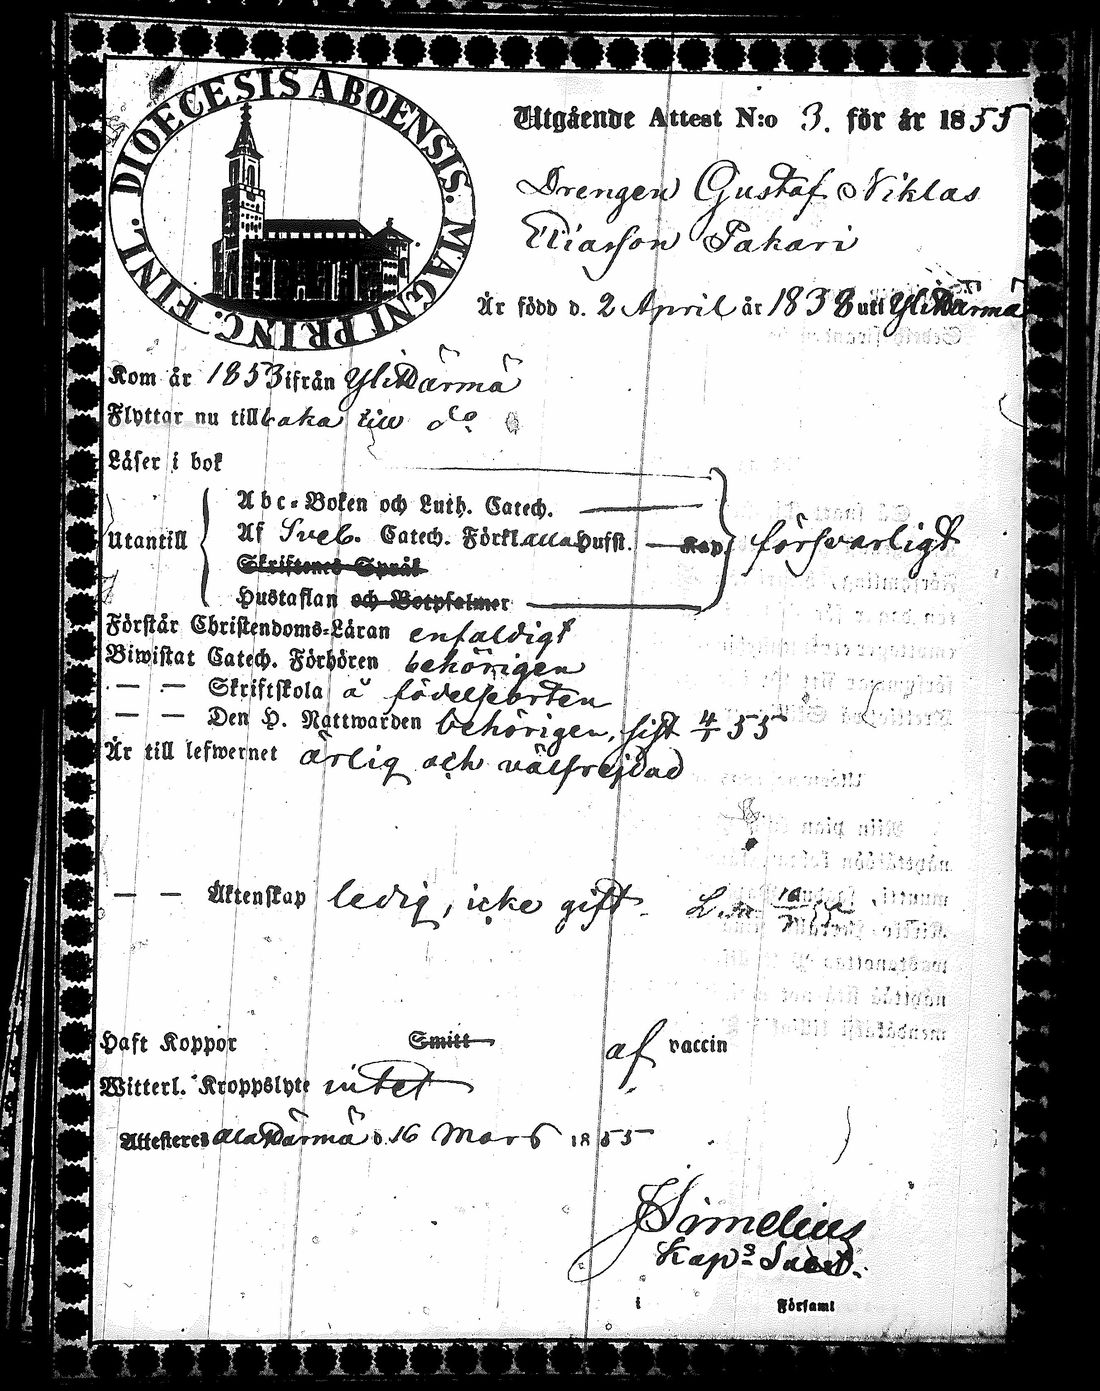 DIOECESIS ABOENSIS. MAGNI PRINC. FINL.
Utgående Attest N:o 3. för år 1855
Drengen Gustaf Niklas
Eliasson Pakari
Är född d. 2 April år 1838 uti Ylihärmä
Kom år 1853 ifrån Ylihärmä
Flyttar nu tillbaka till do
Läser i bok
Utantill
Abc-Boken och Luth. Catech.
Af Sveb. Catech. Förkl. alla Hufst. Kap. försvarligt
Skriftenes Språk
Hustaflan och Botpsalmer
Förstår Christendoms-Läran enfaldigt
Biwistat Catech. Förhören behörigen
— — Skriftskola å födelseorten
— — Den H. Nattwarden behörigen, sist 4/1 55
Är till lefwernet ärlig och välfrejdad
— — Äktenskap ledig, icke gift.
Haft Koppor Smitt af vaccin
Witterl. Kroppslyte intet
Attesteras Alahärmä d. 16 Mars 1855
Simelius
Kap:s
i Församl